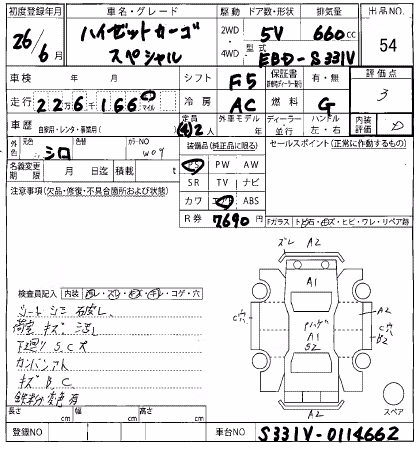 初度登録年月 車名・グレード 駆動 ドア数・形状 排気量 出品NO.
26/6月 ハイゼットカーゴ スペシャル 2WD 4WD 5V 660cc 54
型式 EBD-S331V
車検 年 月 シフト F5 保証書 有・無 評価点 3
走行 226千166 マイル 冷房 AC 燃料 G
車歴 自家用・レンタ・事業用( ) 定員 (4)2人 外車モデル 年 ディーラー・並行 ハンドル 左・右 内装評価 D
外色 元色 シロ 色替 カラーNO W09 装備品(純正品に限る) セールスポイント(正常に作動するもの)
名義変更期限 月 日迄 積載 t PS PW AW
SR TV ナビ
注意事項(欠品・修復・不具合箇所および状態) カワ エアB ABS
R券 7690円
Fガラス トビ石・キズ・ヒビ・ワレ・リペア跡
ズレ A2
A1
A2
A1
S2
B2
A2
スペア
検査員記入 内装 ヨゴレ・スレ・キズ・キレ・コゲ・穴
シートシミ 破レ
荷室キズ 凹
下廻りS,Cズ
カンバンアト
キズB.C.
鉄粉 変色有
長さ cm 幅 cm 高さ cm
登録NO 車台NO S331V-0114662